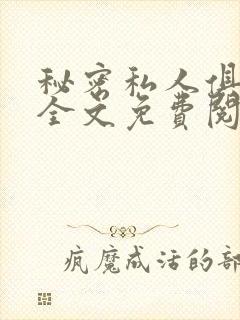 秘密私人俱
全文免費閱
疯魔成活的部